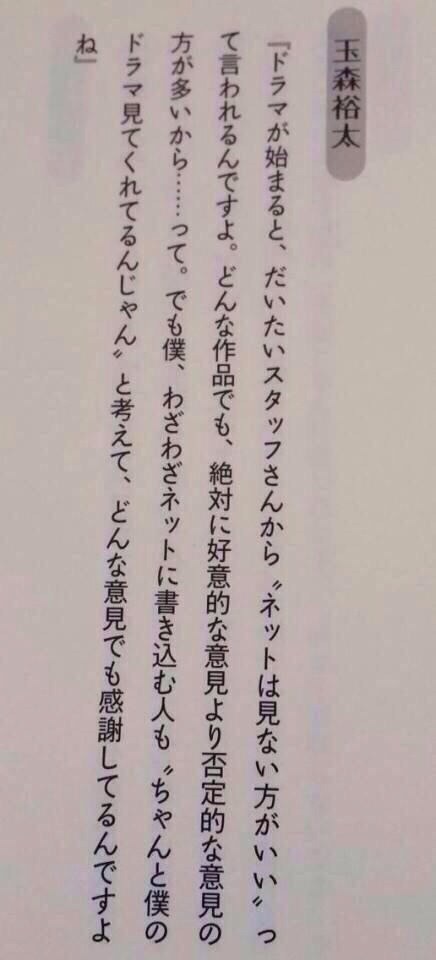 玉森裕太
『ドラマが始まると、だいたいスタッフさんから〝ネットは見ない方がいい〟っ
て言われるんですよ。どんな作品でも、絶対に好意的な意見より否定的な意見の
方が多いから……って。でも僕、わざわざネットに書き込む人も〝ちゃんと僕の
ドラマ見てくれてるんじゃん〟と考えて、どんな意見でも感謝してるんですよ
ね』